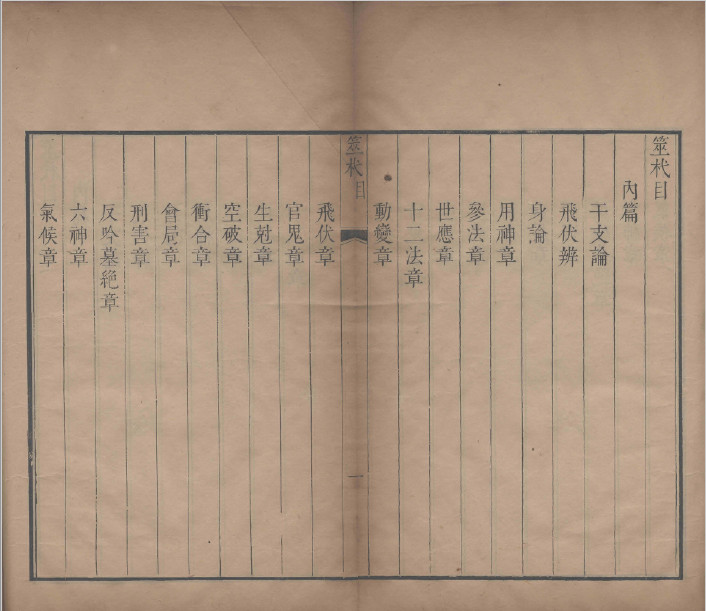 筮杙目
內篇
干支論
飛伏辨
身論
用神章
參法章
世應章
十二法章
動變章
筮杙目
一
飛伏章
官鬼章
生尅章
空破章
衝合章
會局章
刑害章
反吟墓絕章
六神章
氣候章